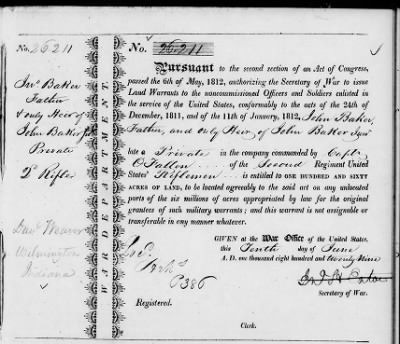 No. 26211
Jno. Baker
Father
& only Heir of
John Baker Jr.
Private
2d Rifles
Wilmington
Indiana
WAR DEPARTMENT.
No. 26.211
Pursuant to the second section of an Act of Congress,
passed the 6th of May, 1812, authorizing the Secretary of War to issue
Land Warrants to the noncommissioned Officers and Soldiers enlisted
in the service of the United States, conformably to the acts of the 24th
of December, 1811, and of the 11th of January, 1812, John Baker,
Father, and only Heir, of John Baker Junr
late a Private in the company commanded by Capt.
O'Fallon of the Second Regiment United
States' Riflemen is entitled to ONE HUNDRED AND SIXTY
ACRES OF LAND, to be located agreeably to the said act on any unlocated
parts of the six millions of acres appropriated by law for the original
grantees of such military warrants; and this warrant is not assignable or
transferable in any manner whatever.
GIVEN at the War Office of the United States,
this Tenth day of June
A. D. one thousand eight hundred and twenty Nine
Secretary of War.
P386
Registered.
Clerk.